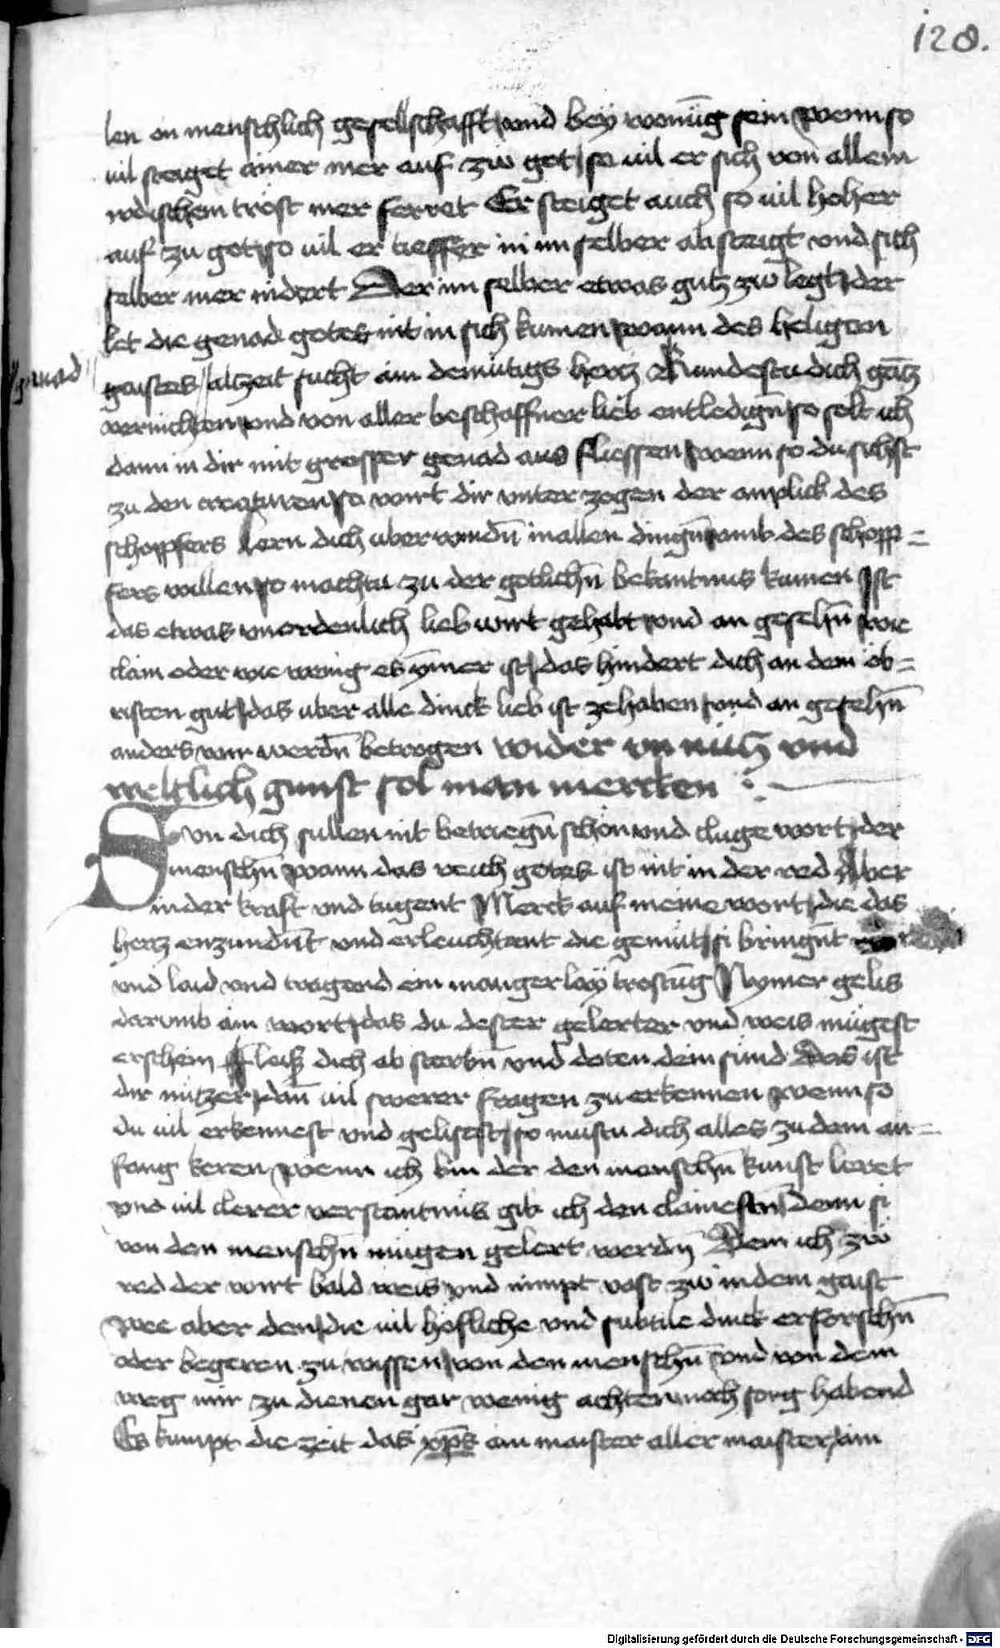 128.
len on menschlich gesellschafft vnd bey wonūg sein wenn so
vil steiget ainer mer auf zw got so vil er sich von allem
irdischem trost mer ferret Er steiget auch so vil hoher
auf zu got so vil er tieffer in im selber absteigt vnd sich
selber mer nidert Der im selber etwas gutz zw legt der
let die genad gotes nit in sich kumen wann des heligen
genad
geistes altzeit sucht ain demütigs hertz kundestu dich gātz
vernichten vnd von aller beschaffner lieb entledign̄ so solt ich
dann in dir mit grosser genad aus fliessen wenn so du sichst
zu den creaturen so wirt dir vnter zogen der anplick des
schopfers lern dich vberwindn̄ in allen dingn̄ vmb des schopf=
fers willen so machtu zu der gotlichn̄ bekantnus kumen Ist
das etwas vnordenlich lieb wirt gehabt vnd an gesehn̄ wie
clain oder wie wenig es ymer ist das hindert dich an dem ob=
risten gut das vber alle dinck lieb ist zehaben vnd an gesehn̄
anders wir werdn̄ betrogen wider vnnütz vnd
weltlich gunst sol man mercken :
Svn dich sullen nit betriegn̄ schon vnd cluge wort der
menschn̄ wann das reich gotes ist nit in der red Aber
in der kraft vnd tugent Merck auf meine wort die das
hertz enzundn̄t vnd erleuchtent die gemüt si bringn̄t
vnd laid vnd tragend ein mangerlay trostūg Nymer gelis
darumb ain wort das du dester gelerter vnd weis mügest
erschein Fleiß dich ab sterbn̄ vnd doten dein sünd Das ist
dir nützer dan̄ vil swerer fragen zu erkennen wenn so
du vil erkennest vnd gelisest so mustu dich alles zu dem an=
fang keren wenn ich bin der den menschn̄ kunst leret
vnd vil clerer verstantnüs gib ich den clainesten denn si
von den menschn̄ mügen gelert werdn̄ Dem ich zw
red der wirt bald weis vnd nimpt vast zw in dem geist
wee aber den die vil höfliche vnd subtile dinck erforschn̄
oder begeren zu wissen von den menschn̄ vnd von dem
weg mir zu dienen gar wenig achten noch sorg habend
Es kumpt die zeit das xp̄s ain maister aller maister ain
Digitalisierung gefördert durch die Deutsche Forschungsgemeinschaft - DFG